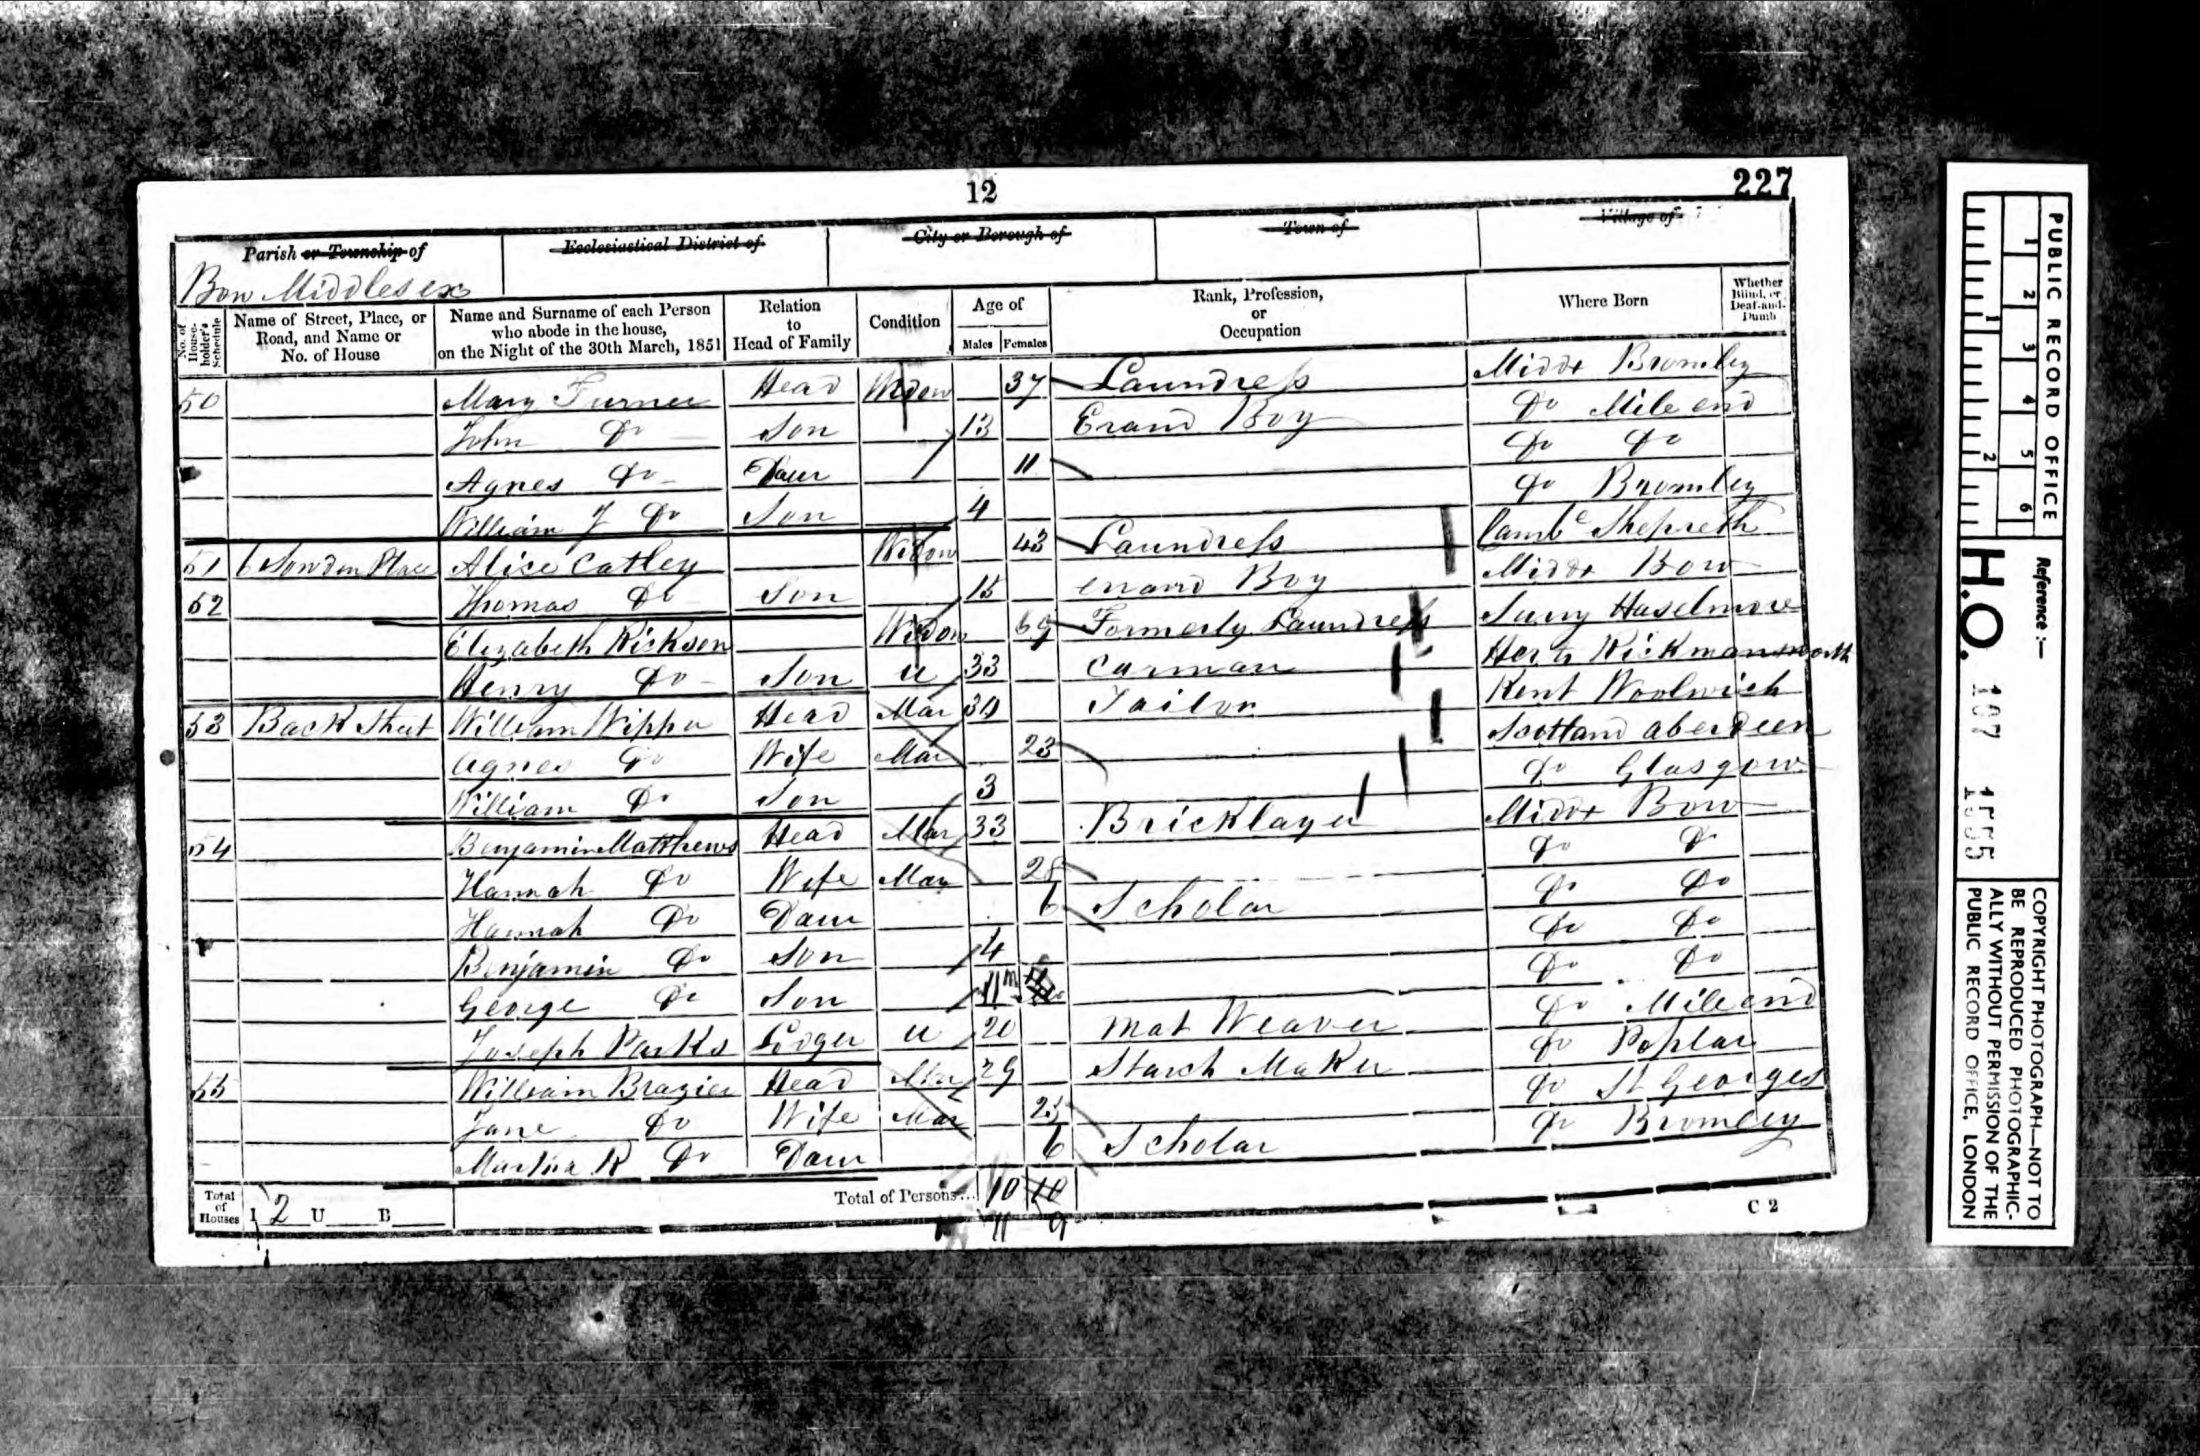 12
227
Parish or Township of
Ecclesiastical District of
City or Borough of
Town of
Village of
Bow Middlesex
No. of House-holder's Schedule
Name of Street, Place, or Road, and Name or No. of House
Name and Surname of each Person who abode in the house, on the Night of the 30th March, 1851
Relation to Head of Family
Condition
Age of
Males
Females
Rank, Profession, or Occupation
Where Born
Whether Blind, or Deaf-and-Dumb
50 Mary Turner Head Widow 37 Laundress Middx Bromley
John Do Son 13 Erand Boy Do Mile end
Agnes Do Daur 11 Do Do
William J Do Son 4 Do Bromley
51 6 Sowden Place Alice Catley Widow 43 Laundress Camb Shepreth
52 Thomas Do Son 15 errand Boy Middx Bow
Elizabeth Rickson Widow 69 Formerly Laundress Surry Haselmore
Henry Do Son U 33 Carman Herts Rickmansworth
53 Back Street William Wipper Head Mar 34 Tailor Kent Woolwich
Agnes Do Wife Mar 23 Scotland aberdeen
William Do Son 3 Do Glasgow
54 Benjamin Matthews Head Mar 33 Bricklayer Middx Bow
Hannah Do Wife Mar 28 Do Do
Hannah Do Daur 6 Scholar Do Do
Benjamin Do Son 4 Do Do
George Do Son 11m Do Do
Joseph Parks Lodger U 20 Mat Weaver Do Mile end
55 William Brazier Head Mar 29 Starch Maker Do Poplar
Jane Do Wife Mar 25 Do St Georges
Martha R Do Daur 6 Scholar Do Bromley
Total of Houses I 2 U B
Total of Persons... 10 10
11 9
C 2
PUBLIC RECORD OFFICE
1 2 3 4 5 6
1 2
Reference :-
H.O. 107 1555
COPYRIGHT PHOTOGRAPH—NOT TO
BE REPRODUCED PHOTOGRAPHIC-
ALLY WITHOUT PERMISSION OF THE
PUBLIC RECORD OFFICE, LONDON